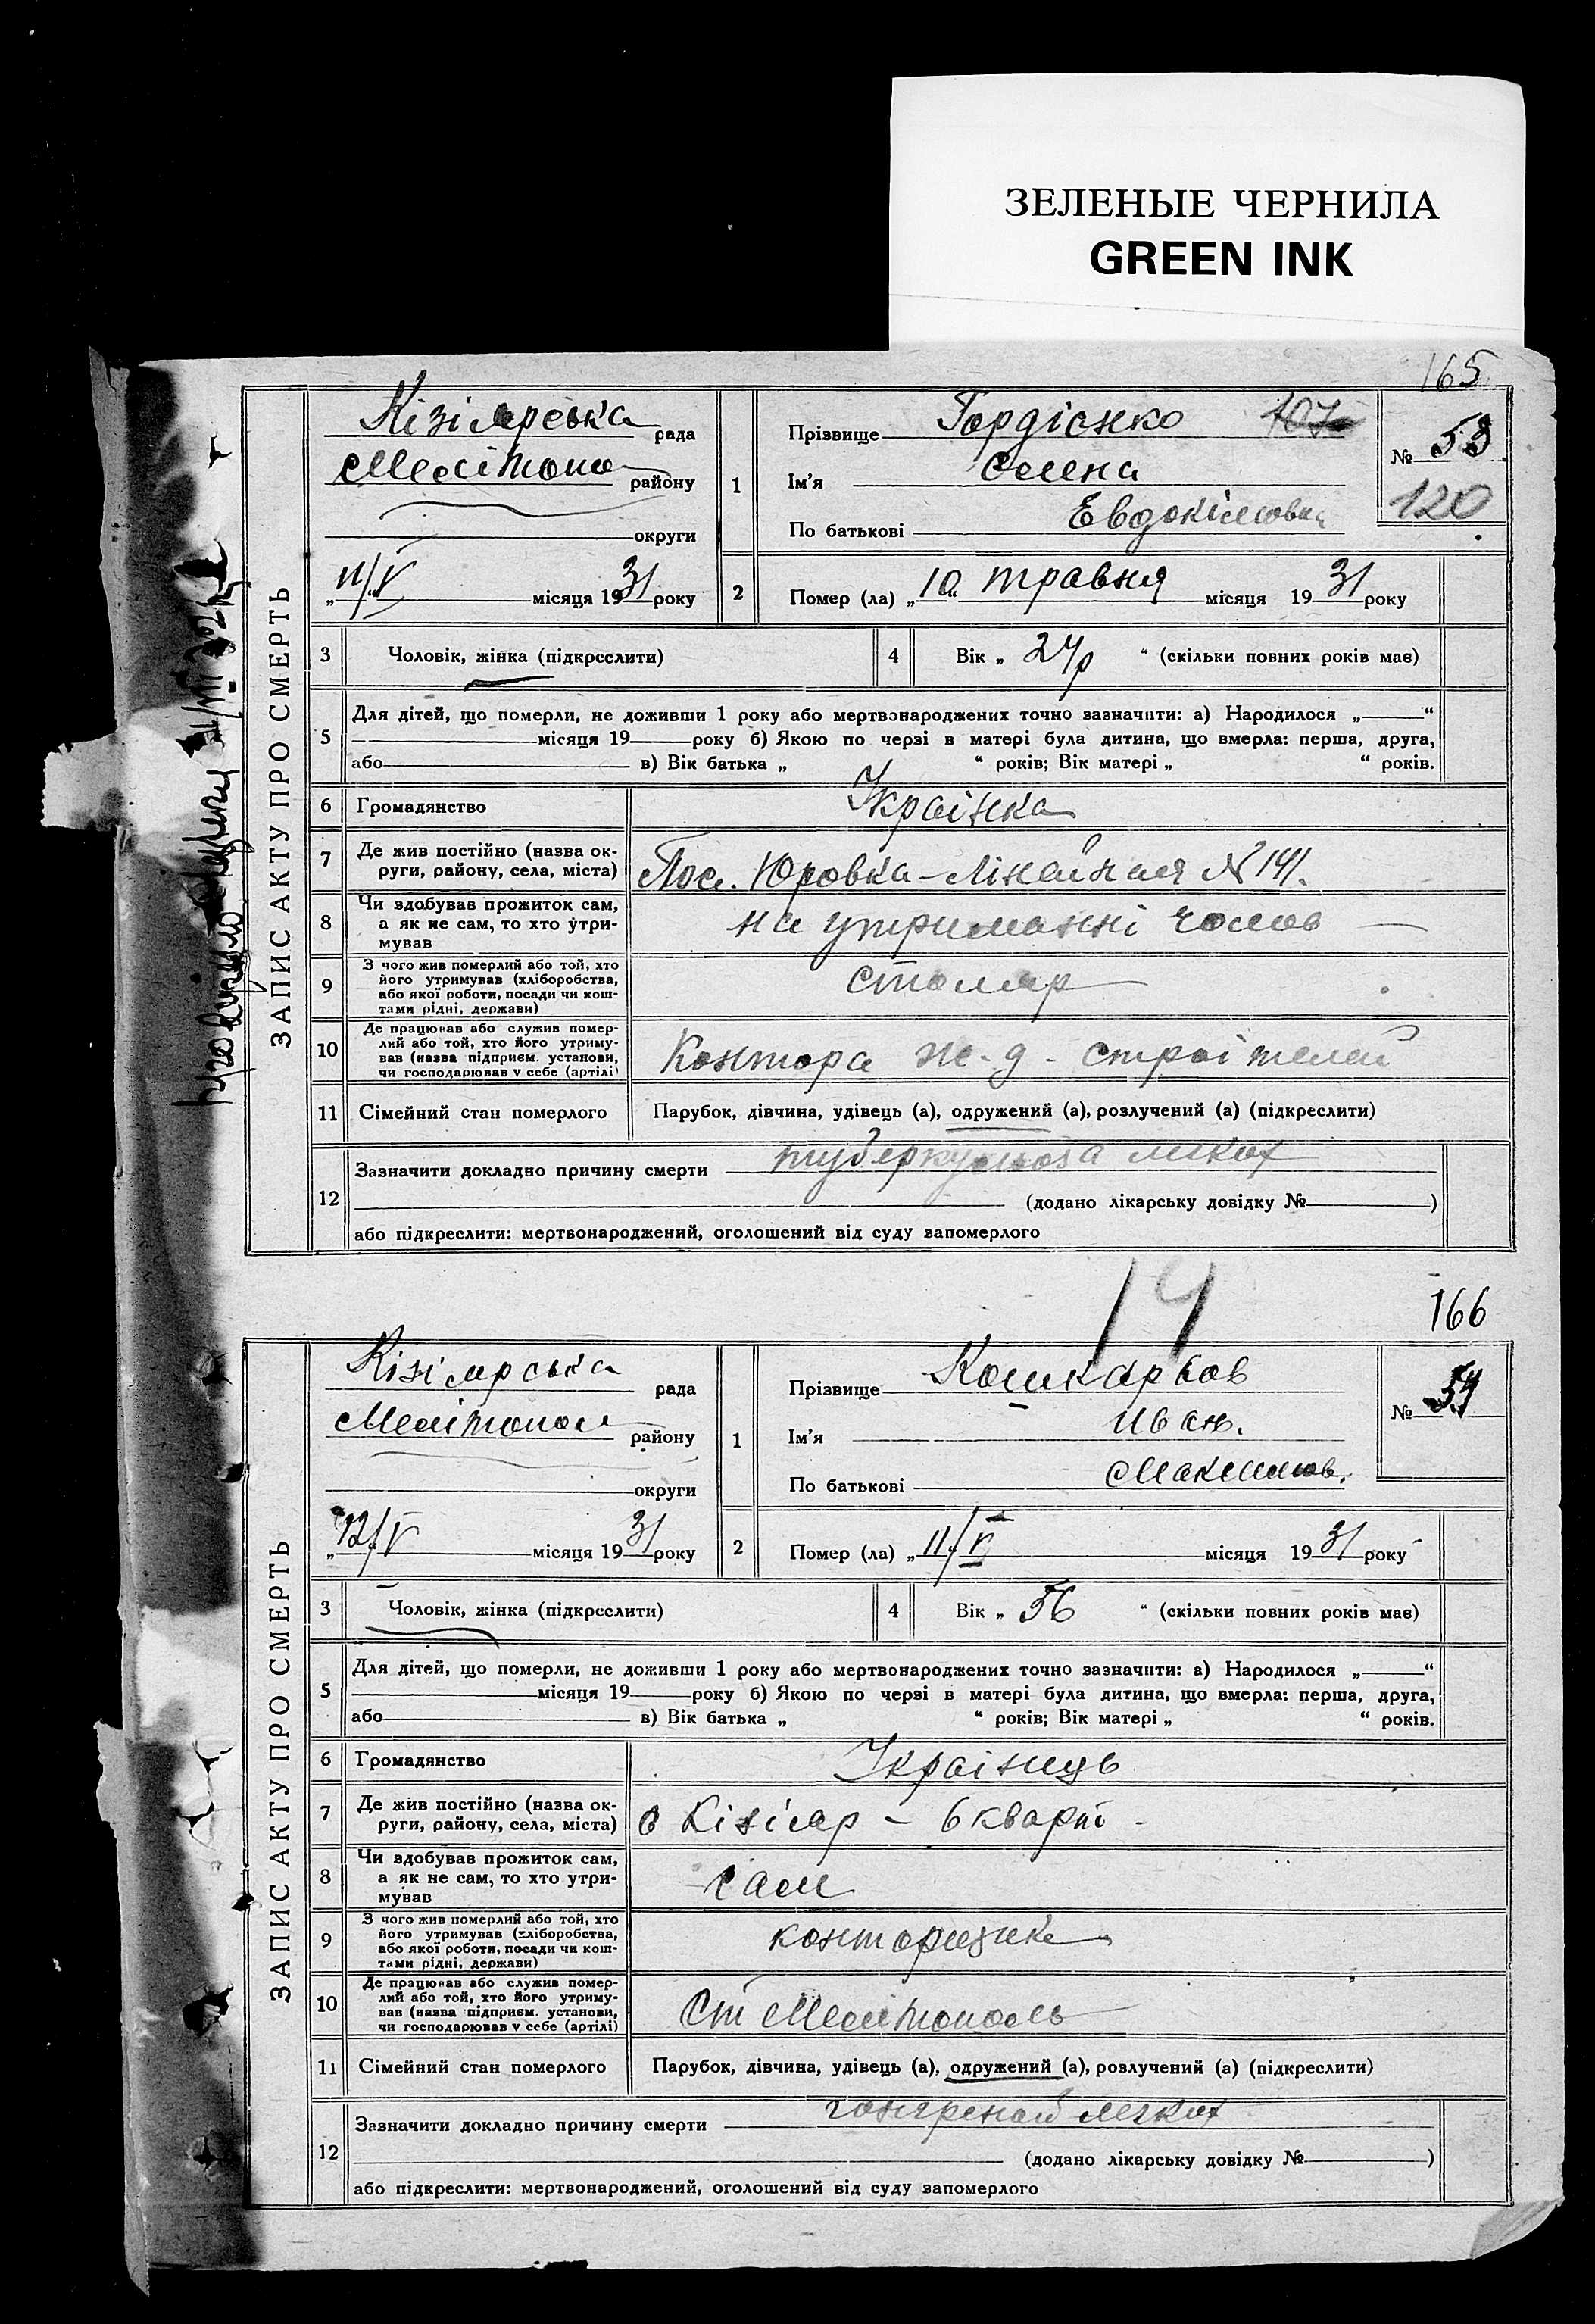 ЗЕЛЕНЫЕ ЧЕРНИЛА
GREEN INK
165
ЗАПИС АКТУ ПРО СМЕРТЬ
Кізіярська рада
Мелітопо району
округи
„11/V місяця 1931 року
1
Прізвище Гордієнко
Ім'я Олена
По батькові Евдокімовна
№ 53
120
2
Помер (ла) „10“ травня місяця 1931 року
3 Чоловік, жінка (підкреслити)
4 Вік „ 24р “ (скільки повних років має)
5
Для дітей, що померли, не доживши 1 року або мертвонароджених точно зазначити: а) Народилося „ “
місяця 19 року б) Якою по черзі в матері була дитина, що вмерла: перша, друга,
або в) Вік батька „ “ років; Вік матері „ “ років.
6 Громадянство Українка
7 Де жив постійно (назва ок-
руги, району, села, міста) Пос. Юровка - Лінейная № 141.
8 Чи здобував прожиток сам,
а як не сам, то хто утри-
мував на утриманні чолов
9 З чого жив померлий або той, хто
його утримував (хліборобства,
або якої роботи, посади чи кош-
тами рідні, держави) столяр
10 Де працював або служив помер-
лий або той, хто його утриму-
вав (назва підприєм. установи,
чи господарював у себе (артілі) Контора ж-д. строітелей
11 Сімейний стан померлого Парубок, дівчина, удівець (а), одружений (а), розлучений (а) (підкреслити)
12
Зазначити докладно причину смерти туберкульоза легких
(додано лікарську довідку № )
або підкреслити: мертвонароджений, оголошений від суду запомерлого
14
166
ЗАПИС АКТУ ПРО СМЕРТЬ
Кізіярська рада
Мелітопол району
округи
„12/V місяця 1931 року
1
Прізвище Кошкарьов
Ім'я Иван.
По батькові Максимов.
№ 54
2
Помер (ла) „11/V місяця 1931 року
3 Чоловік, жінка (підкреслити)
4 Вік „ 56 “ (скільки повних років має)
5
Для дітей, що померли, не доживши 1 року або мертвонароджених точно зазначити: а) Народилося „ “
місяця 19 року б) Якою по черзі в матері була дитина, що вмерла: перша, друга,
або в) Вік батька „ “ років; Вік матері „ “ років.
6 Громадянство Українець
7 Де жив постійно (назва ок-
руги, району, села, міста) с Кізіяр - 6 кварт -
8 Чи здобував прожиток сам,
а як не сам, то хто утри-
мував сам
9 З чого жив померлий або той, хто
його утримував (хліборобства,
або якої роботи, посади чи кош-
тами рідні, держави) конторщик
10 Де працював або служив помер-
лий або той, хто його утриму-
вав (назва підприєм. установи,
чи господарював у себе (артілі) Ст Мелитополь
11 Сімейний стан померлого Парубок, дівчина, удівець (а), одружений (а), розлучений (а) (підкреслити)
12
Зазначити докладно причину смерти гангреной легких
(додано лікарську довідку № )
або підкреслити: мертвонароджений, оголошений від суду запомерлого